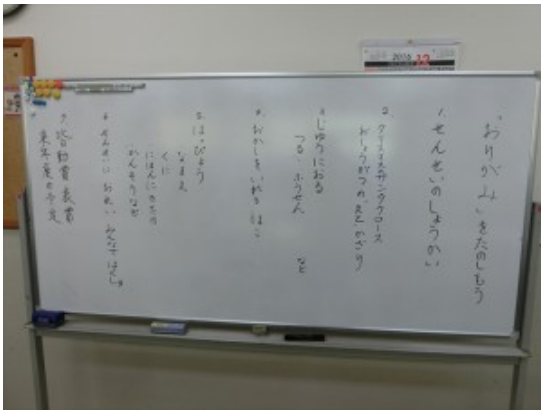 「おりがみ」をたのしもう
1. せんせいのしょうかい
2. クリスマスサンタクロース
おしょうがつの"えと"かざり
3. じゆうにおる
つる・ふうせん など
4. おかしをいれるはこ
5. はっぴょう
なまえ
くに
にほんにきたの
かんそうなど
6. せんせいに おれい みんなではくしゅ
7. 皆勤賞表賞
来年度の予定
2016 12